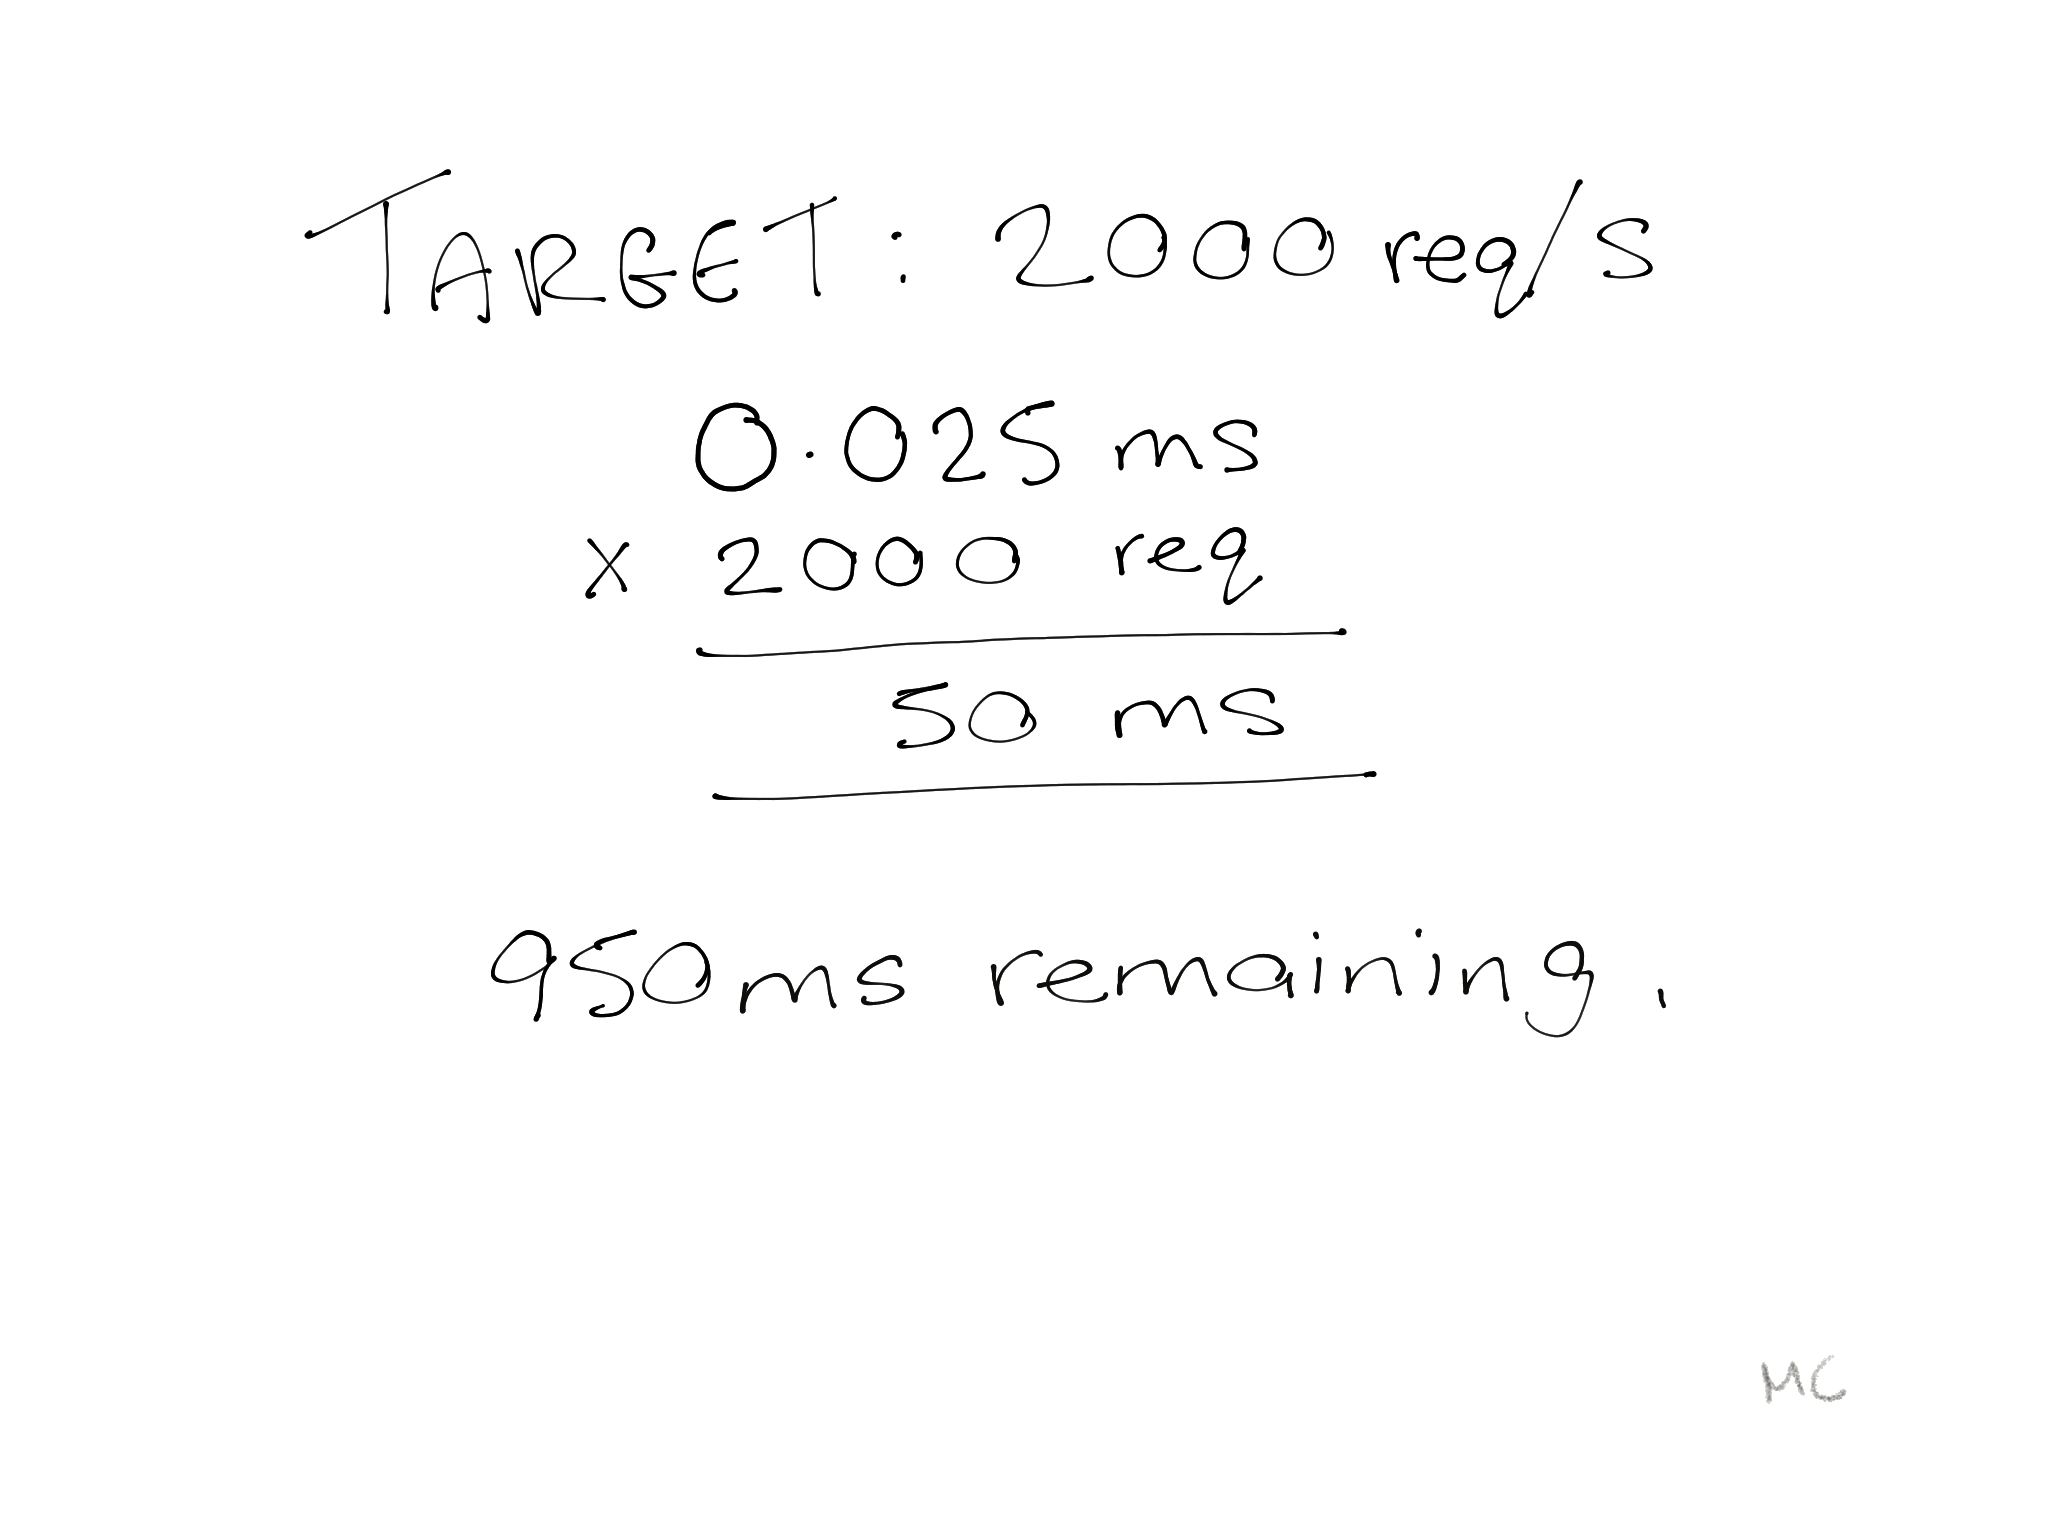 TARGET: 2000 req/s
0.025 ms
x 2000 req
50 ms
950ms remaining.
MC